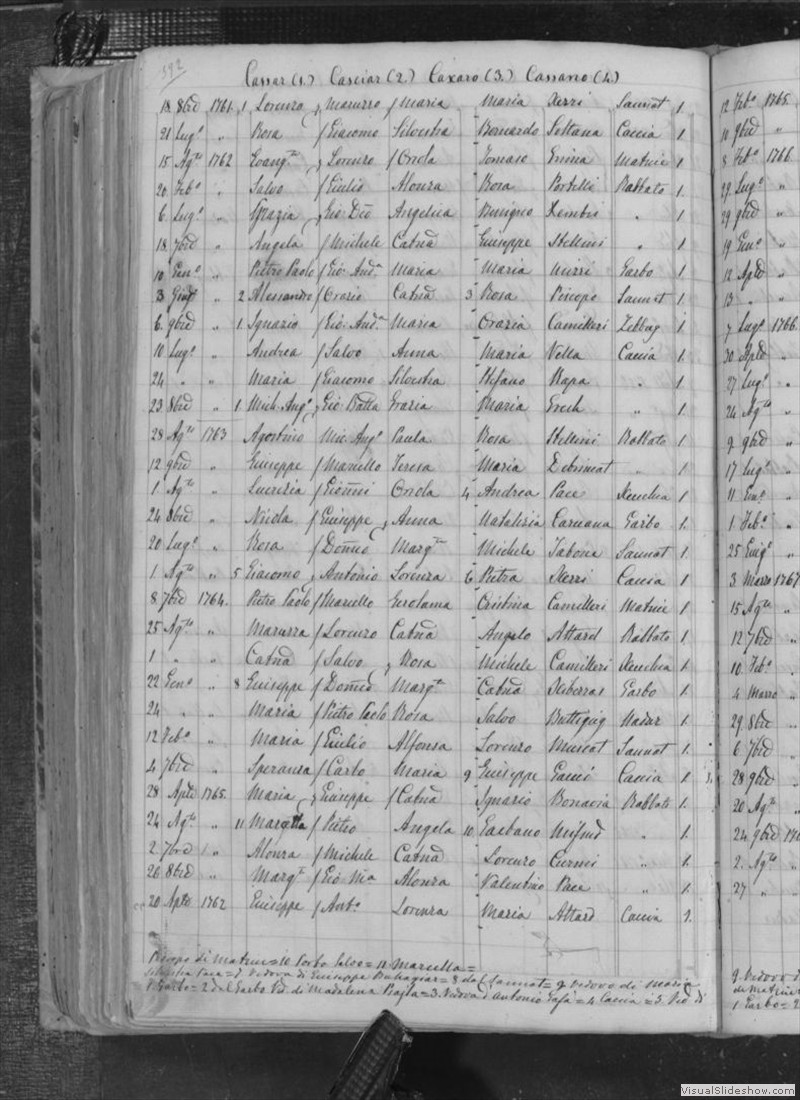 592
Cassar (1.) Casciar (2.) Caxaro (3.) Cassano (4.)
18 8bre 1761. 1 Lorenza Maruzzo / Maria Maria Xerri Sannat 1.
21 Lug.º " Rosa / Giacomo Silvestra Bernardo Soltana Caccia 1.
15 Ag.to 1762 Evang.ta Lorenzo / Orsola Tomaso Matrice 1.
20 Feb.º " Salvo / Giulio Alonza Rosa Portelli Rabbato 1.
6 Lug.º " Grazia Gio Dño Angelica Benigno Xembri " 1
18 7bre " Angela / Michele Catnã Giuseppe Stellini " 1
10 Gen.º " Pietro Paolo / Gio: And.ª Maria Maria Mizzi Garbo 1.
3 " 2 Alessandro / Orazio Catnã 3 Rosa Sannat 1.
6 9bre " 1. Ignazio / Gio: And.ª Maria Orazia Camilleri Zebbug 1
10 Lug.º " Andrea / Salvo Anna Maria Vella Caccia 1.
24 " " Maria / Giacomo Silvestra Stefano Rapa " 1
23 8bre " 1. Mich: Ang.º Gio Batta Grazia Maria Grech " 1
28 Ag.to 1763 Agostino Mic: Ang.º Paula Rosa Stellini Rabbato 1.
12 9bre " Giuseppe / Mariello Teresa Maria Debrincat " 1
1 Ag.to " Lucrezia / Gioñni Orsola 4 Andrea Pace Xeuchia 1.
24 8bre " Nicola / Giuseppe Anna Natalizia Caruana Garbo 1.
20 Lug.º " Rosa / Domco Marg.ta Michele Tabona Sannat 1.
1. Ag.to " 5 Giacomo Antonio Lorenza 6 Pietra Xerri Caccia 1
8 7bre 1764. Pietro Paolo / Mariello Gerolama Cristina Camilleri Matrice 1.
25 Ag.to " Maruzza / Lorenzo Catnã Angelo Attard Rabbato 1.
1 " " Catnã / Salvo Rosa Michele Camilleri Xeuchia 1.
22 Gen.º " 8 Giuseppe / Domco Marg.ta Catnã Xiberras Garbo 1.
24 " " Maria / Pietro Paolo Rosa Salvo Buttigieg Nadur 1.
12 Feb.º " Maria / Giulio Alfonsa Lorenzo Muscat Sannat 1.
4 7bre " Speranza / Carlo Maria 9 Giuseppe Caccia 1
28 Aple 1765. Maria Giuseppe / Catnã Ignazio Bonavia Rabbato 1.
24 Ag.to " 11 / Pietro Angela 10 Gaetano Mifsud " 1.
2. 7bre " Alonza / Michele Catnã Lorenzo Curmi " 1
26 8bre " Marg.ta / Gio Mã Alonza Valentino Pace " 1
20 Aple 1762 Giuseppe / Ant.º Lorenza Maria Attard Caccia 1.
di Matrice = 10 Garbo Salvo = 11 Marcella =
Silvestra Pace = 7 Vedova di Giuseppe Buhagiar = 8 dal Sannat = 9 Vedovo di Maria
1 Garbo = 2 dal Garbo Ved. di Madalena = 3. Vedova d'Antonio = 4 Caccia = 5. Ved. di
12 Feb.º 1765.
10 9bre "
8 Feb.º 1766.
29. Lug.º "
29 9bre "
19 Gen.º "
12 Aple "
13 " "
7 Lug.º 1766.
30 Aple "
27 Lug.º "
24 Ag.to "
9 9bre "
17 Lug.º "
11 Gen.º "
1 Feb.º "
25 Giug.º "
3 Marzo 1767
15 Ag.to "
12 7bre "
10 Feb.º "
4 Marzo "
29 8bre "
6 7bre "
28 9bre "
20 Ag.to "
24 9bre
2. Ag.to "
27 "
9 Vedovo d
di Matrice
1 Garbo = 2
VisualSlideshow.com